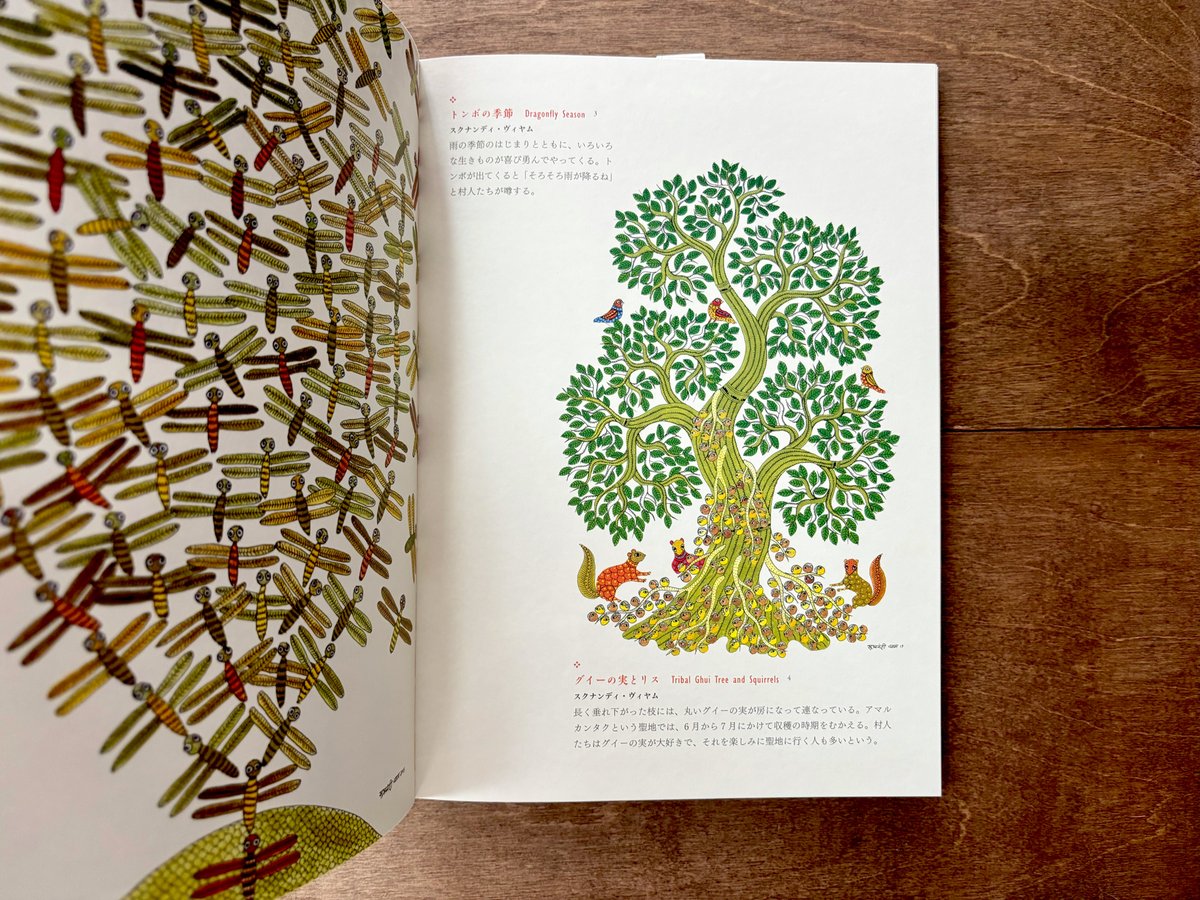 トンボの季節 Dragonfly Season 3
スクナンディ・ヴィヤム
雨の季節のはじまりとともに、いろいろ
な生きものが喜び勇んでやってくる。ト
ンボが出てくると「そろそろ雨が降るね」
と村人たちが噂する。
グイーの実とリス Tribal Ghui Tree and Squirrels 4
スクナンディ・ヴィヤム
長く垂れ下がった枝には、丸いグイーの実が房になって連なっている。アマル
カンタクという聖地では、6月から7月にかけて収穫の時期をむかえる。村人
たちはグイーの実が大好きで、それを楽しみに聖地に行く人も多いという。